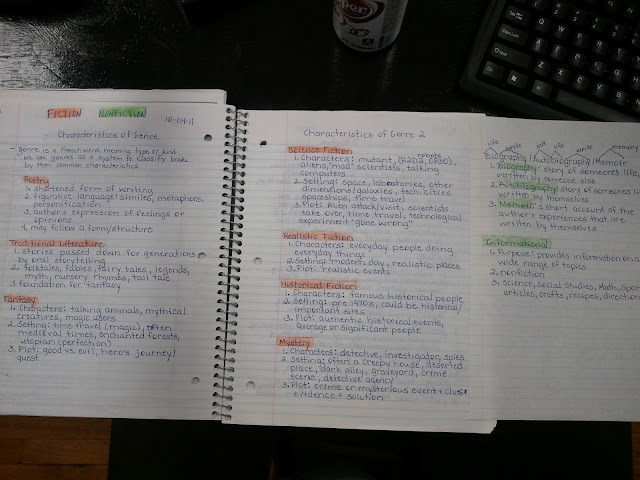 FICTION NONFICTION 10-04-11
Characteristics of Genre
- genre is a french word meaning type or kind.
we use genres as a system to classify books
by their common characteristics
Poetry
1. shortened form of writing
2. figurative language: similes, metaphors,
personification
3. authors expression of feelings or
opinions
4. may follow a form/structure
Traditional Literature
1. stories passed down for generations
by oral storytelling
2. folktales, fables, fairy tales, legends,
myth, nursery rhymes, tall tale
3. foundation for fantasy
Fantasy
1. Characters: talking animals, mythical
creatures, magic users
2. Setting: time travel (magic), often
medieval times, enchanted forests,
utopian (perfection)
3. Plot: good vs. evil, hero's journey/
quest
Characteristics of Genre 2
Science Fiction
1. Characters: mutant, robots (R2D2, CP30),
aliens, "mad" scientists, talking
computers
2. Setting: space, laboratories, other
dimensions/galaxies, tech. cities
spaceships, time travel
3. Plot: Alien attack/visit, scientists
take over, time travel, technological
experiment "gone wrong"
Realistic Fiction
1. Characters: everyday people doing
everyday things
2. Setting: modern day, realistic places
3. Plot: realistic events
Historical Fiction
1. Characters: famous historical people
2. Setting: pre 1980s, could be historical/
important sites
3. Plot: authentic historical events,
average or significant people
Mystery
1. Characters: detective, investigator, spies
2. Setting: often a creepy house, deserted
place, dark alley, graveyard, crime
scene, detective agency
3. Plot: crime or mysterious event + clues +
evidence = solution
life write self life write memory
Biography/Autobiography/Memoir
1. Biography: story of someone's life,
written by someone else
2. Autobiography: story of someone's
written by themselves
3. Memoir: a short account of the
author's experiences that are
written by themselves
Informational
1. Purpose: provides information on a
wide range of topics
2. nonfiction
3. science, social studies, Math, Sports
articles, crafts, recipes, directions